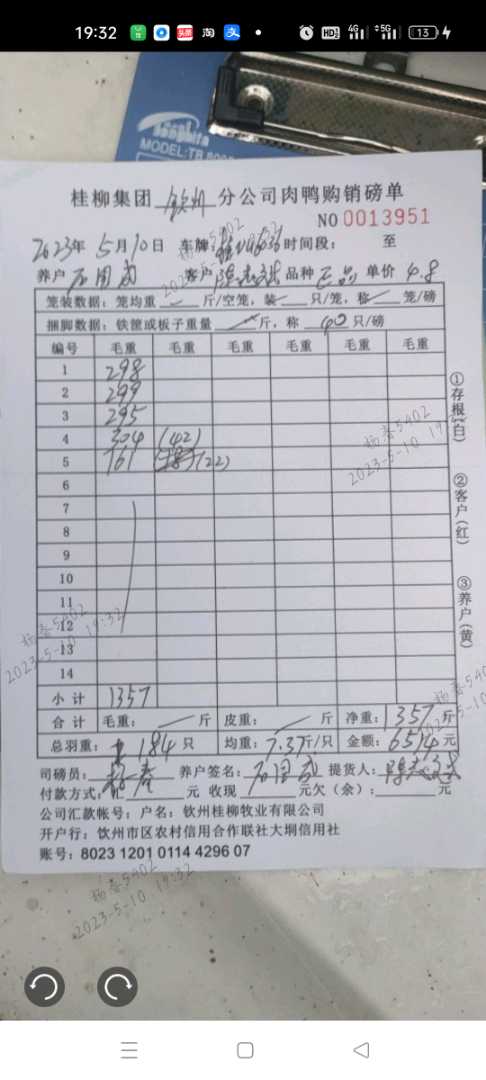 19:32
HD 4G 5G 13
MODEL:TB
桂柳集团 钦州 分公司肉鸭购销磅单
NO 0013951
2023年 5月10日 车牌: 时间段: 至
养户 石国武 客户 品种 正品 单价 4.8
笼装数据: 笼均重 斤/空笼, 装 只/笼, 称 笼/磅
捆脚数据: 铁筐或板子重量 斤, 称 40 只/磅
编号 毛重 毛重 毛重 毛重 毛重 毛重
1 298
2 299
3 295
4 304 (42)
5 161 (22)
6
7
8
9
10
11
12
13
14
小计 1357
合计 毛重: 斤 皮重: 斤 净重: 1357 斤
总羽重: 184 只 均重: 7.37斤/只 金额: 6514 元
司磅员: 杨春 养户签名: 石国武 提货人:
付款方式: 元 收现 元欠(余): 元
公司汇款帐号: 户名: 钦州桂柳牧业有限公司
开户行: 钦州市区农村信用合作联社大垌信用社
账号: 8023 1201 0114 4296 07
①存根(白)
②客户(红)
③养户(黄)
杨春5402
2023-5-10 19:32
杨春5402
2023-5-10 19:32
杨春5402
2023-5-10 19:32